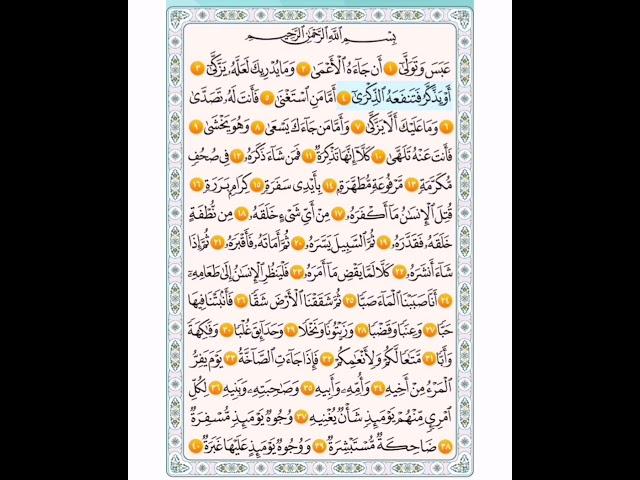 بِسْمِ ٱللَّهِ ٱلرَّحْمَٰنِ ٱلرَّحِيمِ
عَبَسَ وَتَوَلَّىٰٓ ١ أَن جَآءَهُ ٱلْأَعْمَىٰ ٢ وَمَا يُدْرِيكَ لَعَلَّهُۥ يَزَّكَّىٰٓ ٣
أَوْ يَذَّكَّرُ فَتَنفَعَهُ ٱلذِّكْرَىٰٓ ٤ أَمَّا مَنِ ٱسْتَغْنَىٰ ٥ فَأَنتَ لَهُۥ تَصَدَّىٰ
٦ وَمَا عَلَيْكَ أَلَّا يَزَّكَّىٰ ٧ وَأَمَّا مَن جَآءَكَ يَسْعَىٰ ٨ وَهُوَ يَخْشَىٰ ٩
فَأَنتَ عَنْهُ تَلَهَّىٰ ١٠ كَلَّآ إِنَّهَا تَذْكِرَةٌ ١١ فَمَن شَآءَ ذَكَرَهُۥ ١٢ فِى صُحُفٍ
مُّكَرَّمَةٍ ١٣ مَّرْفُوعَةٍ مُّطَهَّرَةٍۭ ١٤ بِأَيْدِى سَفَرَةٍ ١٥ كِرَامٍۭ بَرَرَةٍ ١٦
قُتِلَ ٱلْإِنسَٰنُ مَآ أَكْفَرَهُۥ ١٧ مِنْ أَىِّ شَىْءٍ خَلَقَهُۥ ١٨ مِن نُّطْفَةٍ
خَلَقَهُۥ فَقَدَّرَهُۥ ١٩ ثُمَّ ٱلسَّبِيلَ يَسَّرَهُۥ ٢٠ ثُمَّ أَمَاتَهُۥ فَأَقْبَرَهُۥ ٢١ ثُمَّ إِذَا
شَآءَ أَنشَرَهُۥ ٢٢ كَلَّا لَمَّا يَقْضِ مَآ أَمَرَهُۥ ٢٣ فَلْيَنظُرِ ٱلْإِنسَٰنُ إِلَىٰ طَعَامِهِۦٓ
٢٤ أَنَّا صَبَبْنَا ٱلْمَآءَ صَبًّا ٢٥ ثُمَّ شَقَقْنَا ٱلْأَرْضَ شَقًّا ٢٦ فَأَنۢبَتْنَا فِيهَا
حَبًّا ٢٧ وَعِنَبًا وَقَضْبًا ٢٨ وَزَيْتُونًا وَنَخْلًا ٢٩ وَحَدَآئِقَ غُلْبًا ٣٠ وَفَٰكِهَةً
وَأَبًّا ٣١ مَّتَٰعًا لَّكُمْ وَلِأَنْعَٰمِكُمْ ٣٢ فَإِذَا جَآءَتِ ٱلصَّآخَّةُ ٣٣ يَوْمَ يَفِرُّ
ٱلْمَرْءُ مِنْ أَخِيهِ ٣٤ وَأُمِّهِۦ وَأَبِيهِ ٣٥ وَصَٰحِبَتِهِۦ وَبَنِيهِ ٣٦ لِكُلِّ
ٱمْرِئٍ مِّنْهُمْ يَوْمَئِذٍ شَأْنٌ يُغْنِيهِ ٣٧ وُجُوهٌ يَوْمَئِذٍ مُّسْفِرَةٌ
٣٨ ضَاحِكَةٌ مُّسْتَبْشِرَةٌ ٣٩ وَوُجُوهٌ يَوْمَئِذٍ عَلَيْهَا غَبَرَةٌ ٤٠